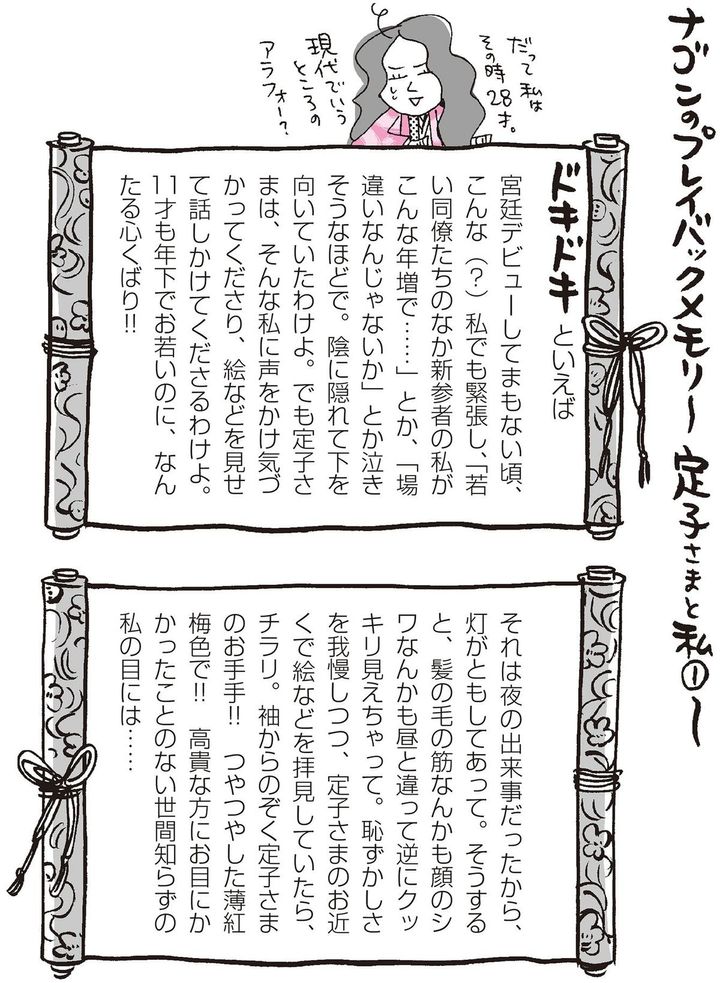 ナゴンのプレイバックメモリー 定子さまと私①〜
だって私は
その時28才。
現代でいう
ところの
アラフォー?
ドキドキといえば
宮廷デビューしてまもない頃、
こんな(?)私でも緊張し、「若
い同僚たちのなか新参者の私が
こんな年増で……」とか、「場
違いなんじゃないか」とか泣き
そうなほどで。陰に隠れて下を
向いていたわけよ。でも定子さ
まは、そんな私に声をかけ気づ
かってくださり、絵などを見せ
て話しかけてくださるわけよ。
11才も年下でお若いのに、なん
たる心くばり!!
それは夜の出来事だったから、
灯がともしてあって。そうする
と、髪の毛の筋なんかも顔のシ
ワなんかも昼と違って逆にクッ
キリ見えちゃって。恥ずかしさ
を我慢しつつ、定子さまのお近
くで絵などを拝見していたら、
チラリ。袖からのぞく定子さま
のお手手!! つやつやした薄紅
梅色で!! 高貴な方にお目にか
かったことのない世間知らずの
私の目には……